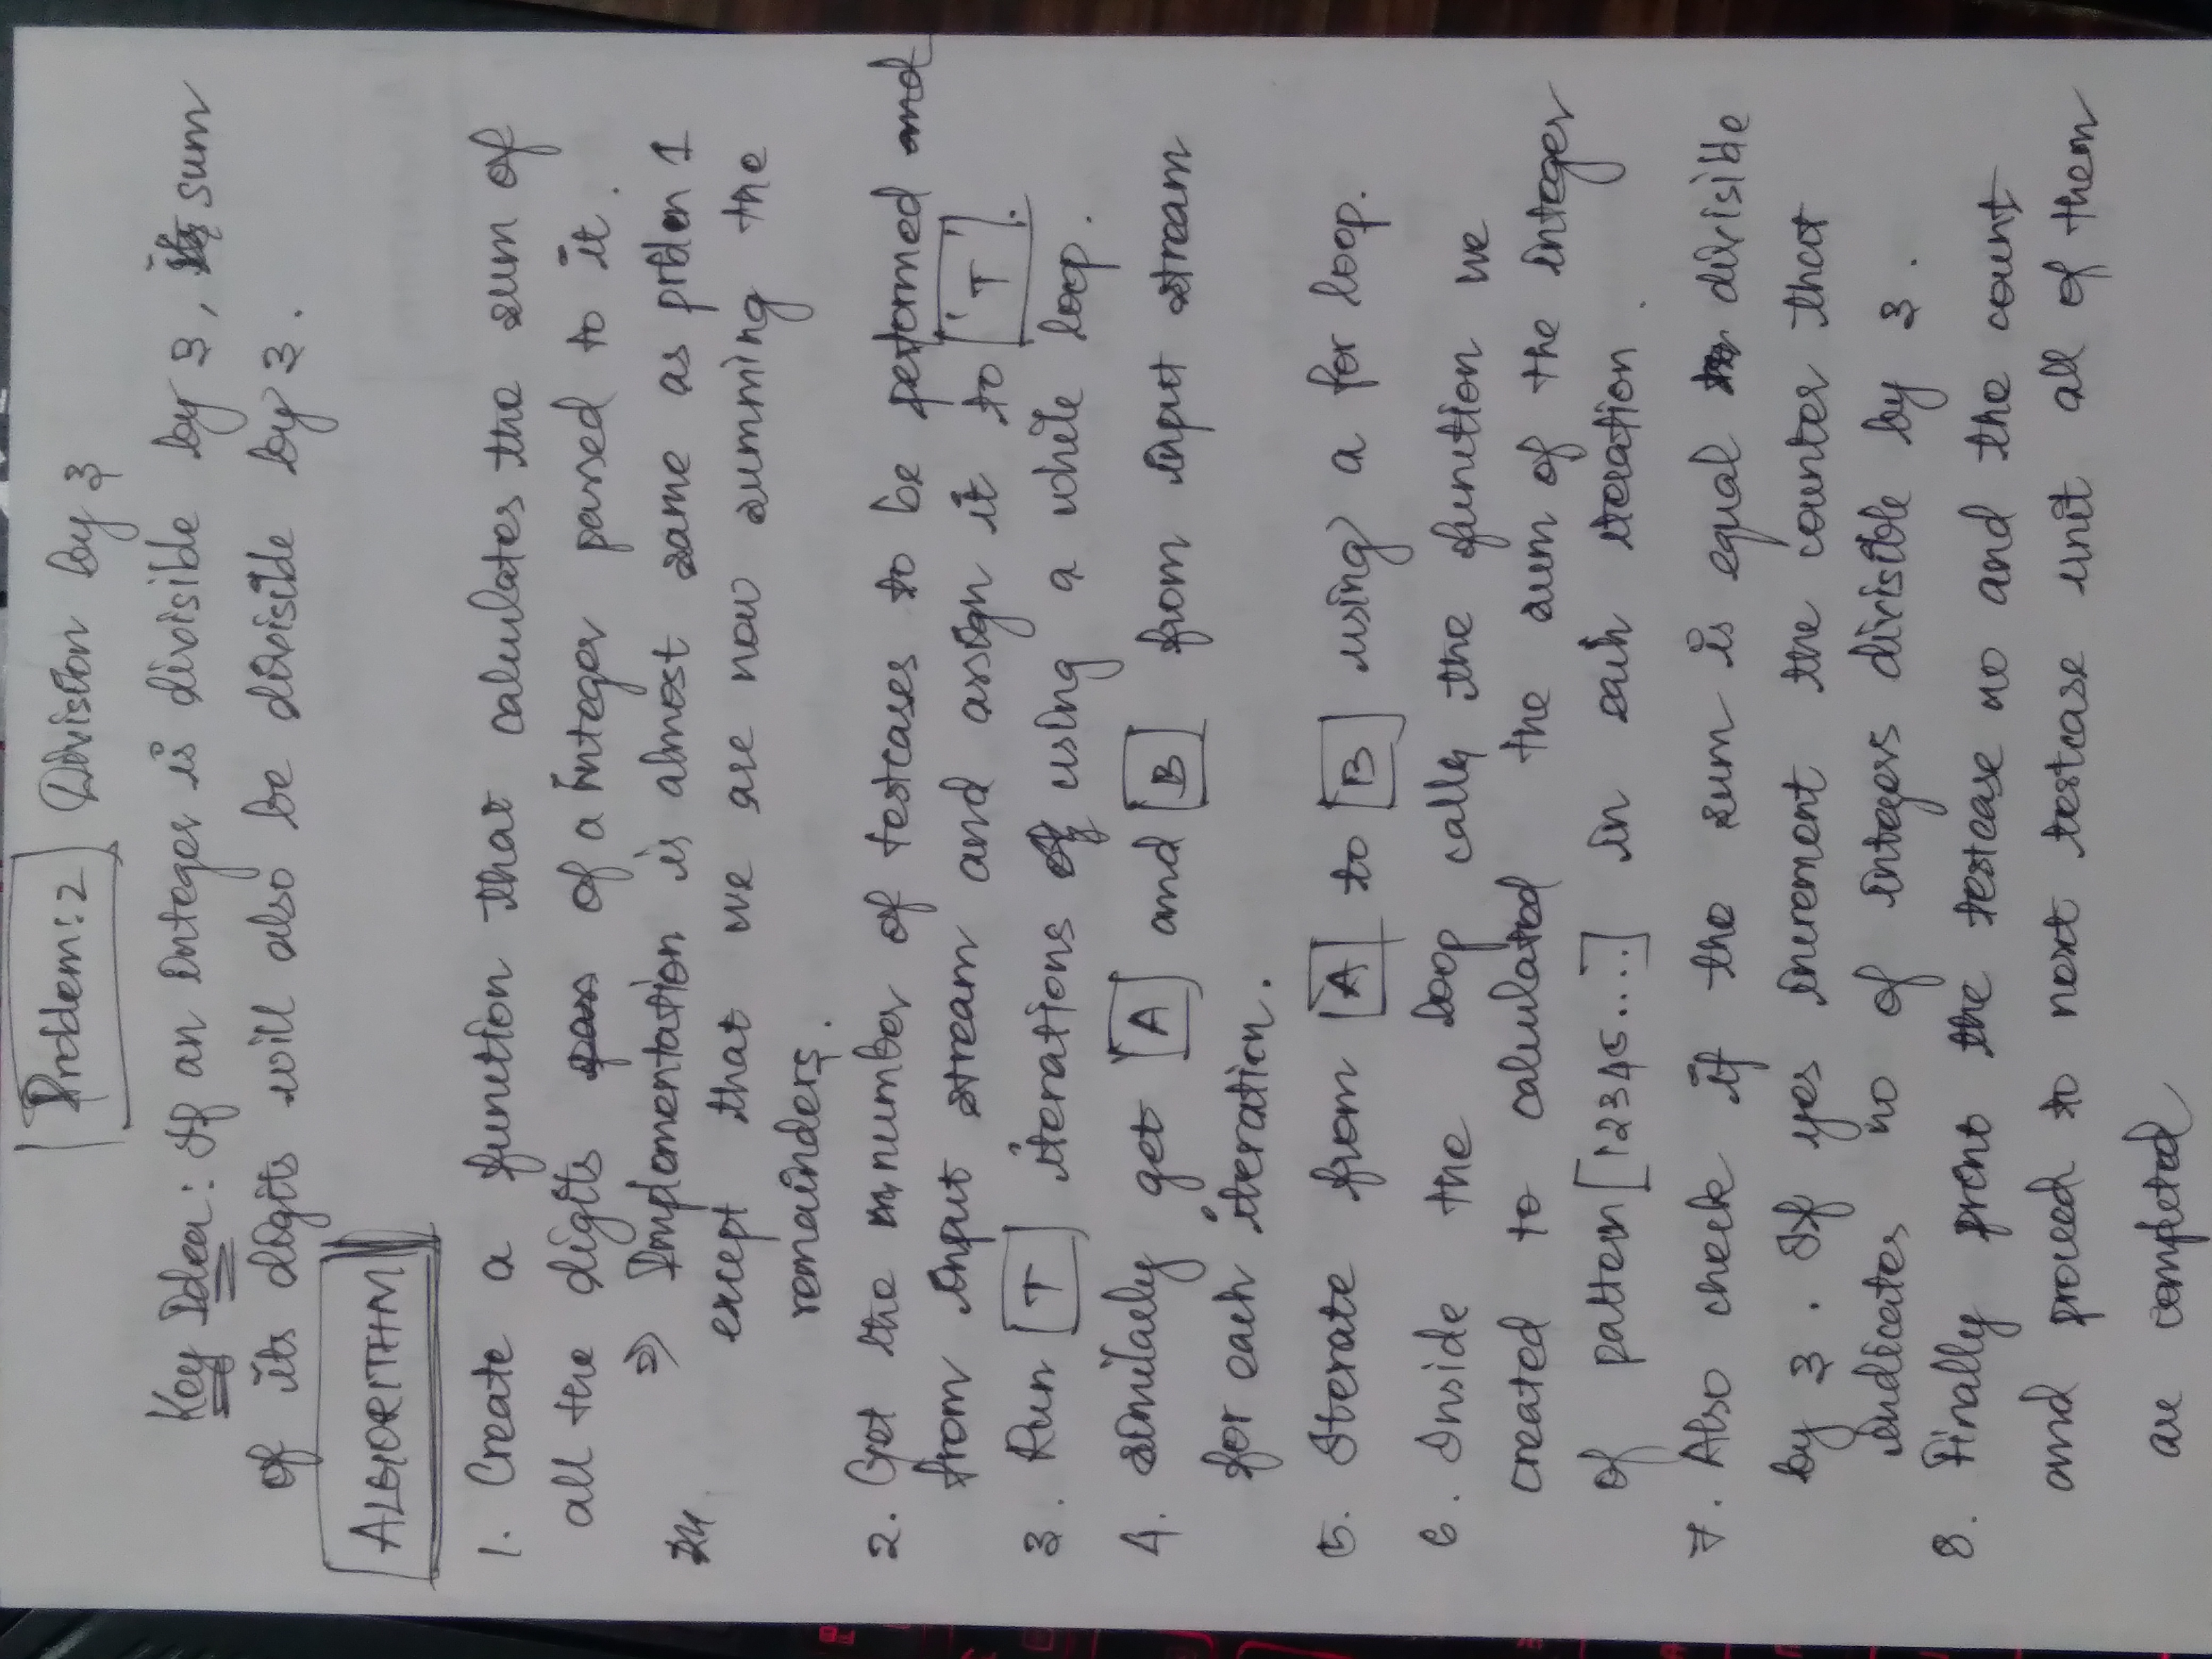 Problem: 2 Division by 3
Key Idea: If an Integer is divisible by 3, sum
of its digits will also be divisible by 3.
ALGORITHM
1. Create a function that calculates the sum of
all the digits pass of a integer passed to it.
⇒ Implementation is almost same as prblem 1
except that we are now summing the
remainders.
2. Get the number of testcases to be performed and
from input stream and assign it to 'T'.
3. Run T iterations of using a while loop.
4. similarly get A and B from input stream
for each iteration.
5. Iterate from A to B using a for loop.
6. Inside the loop call the function we
created to calculated the sum of the integer
of pattern [12345....] in each iteration.
7. Also check if the sum is equal divisible
by 3. If yes increment the counter that
indicates no of integers divisible by 3.
8. Finally print the testcase no and the count
and proceed to next testcase unit all of them
are completed